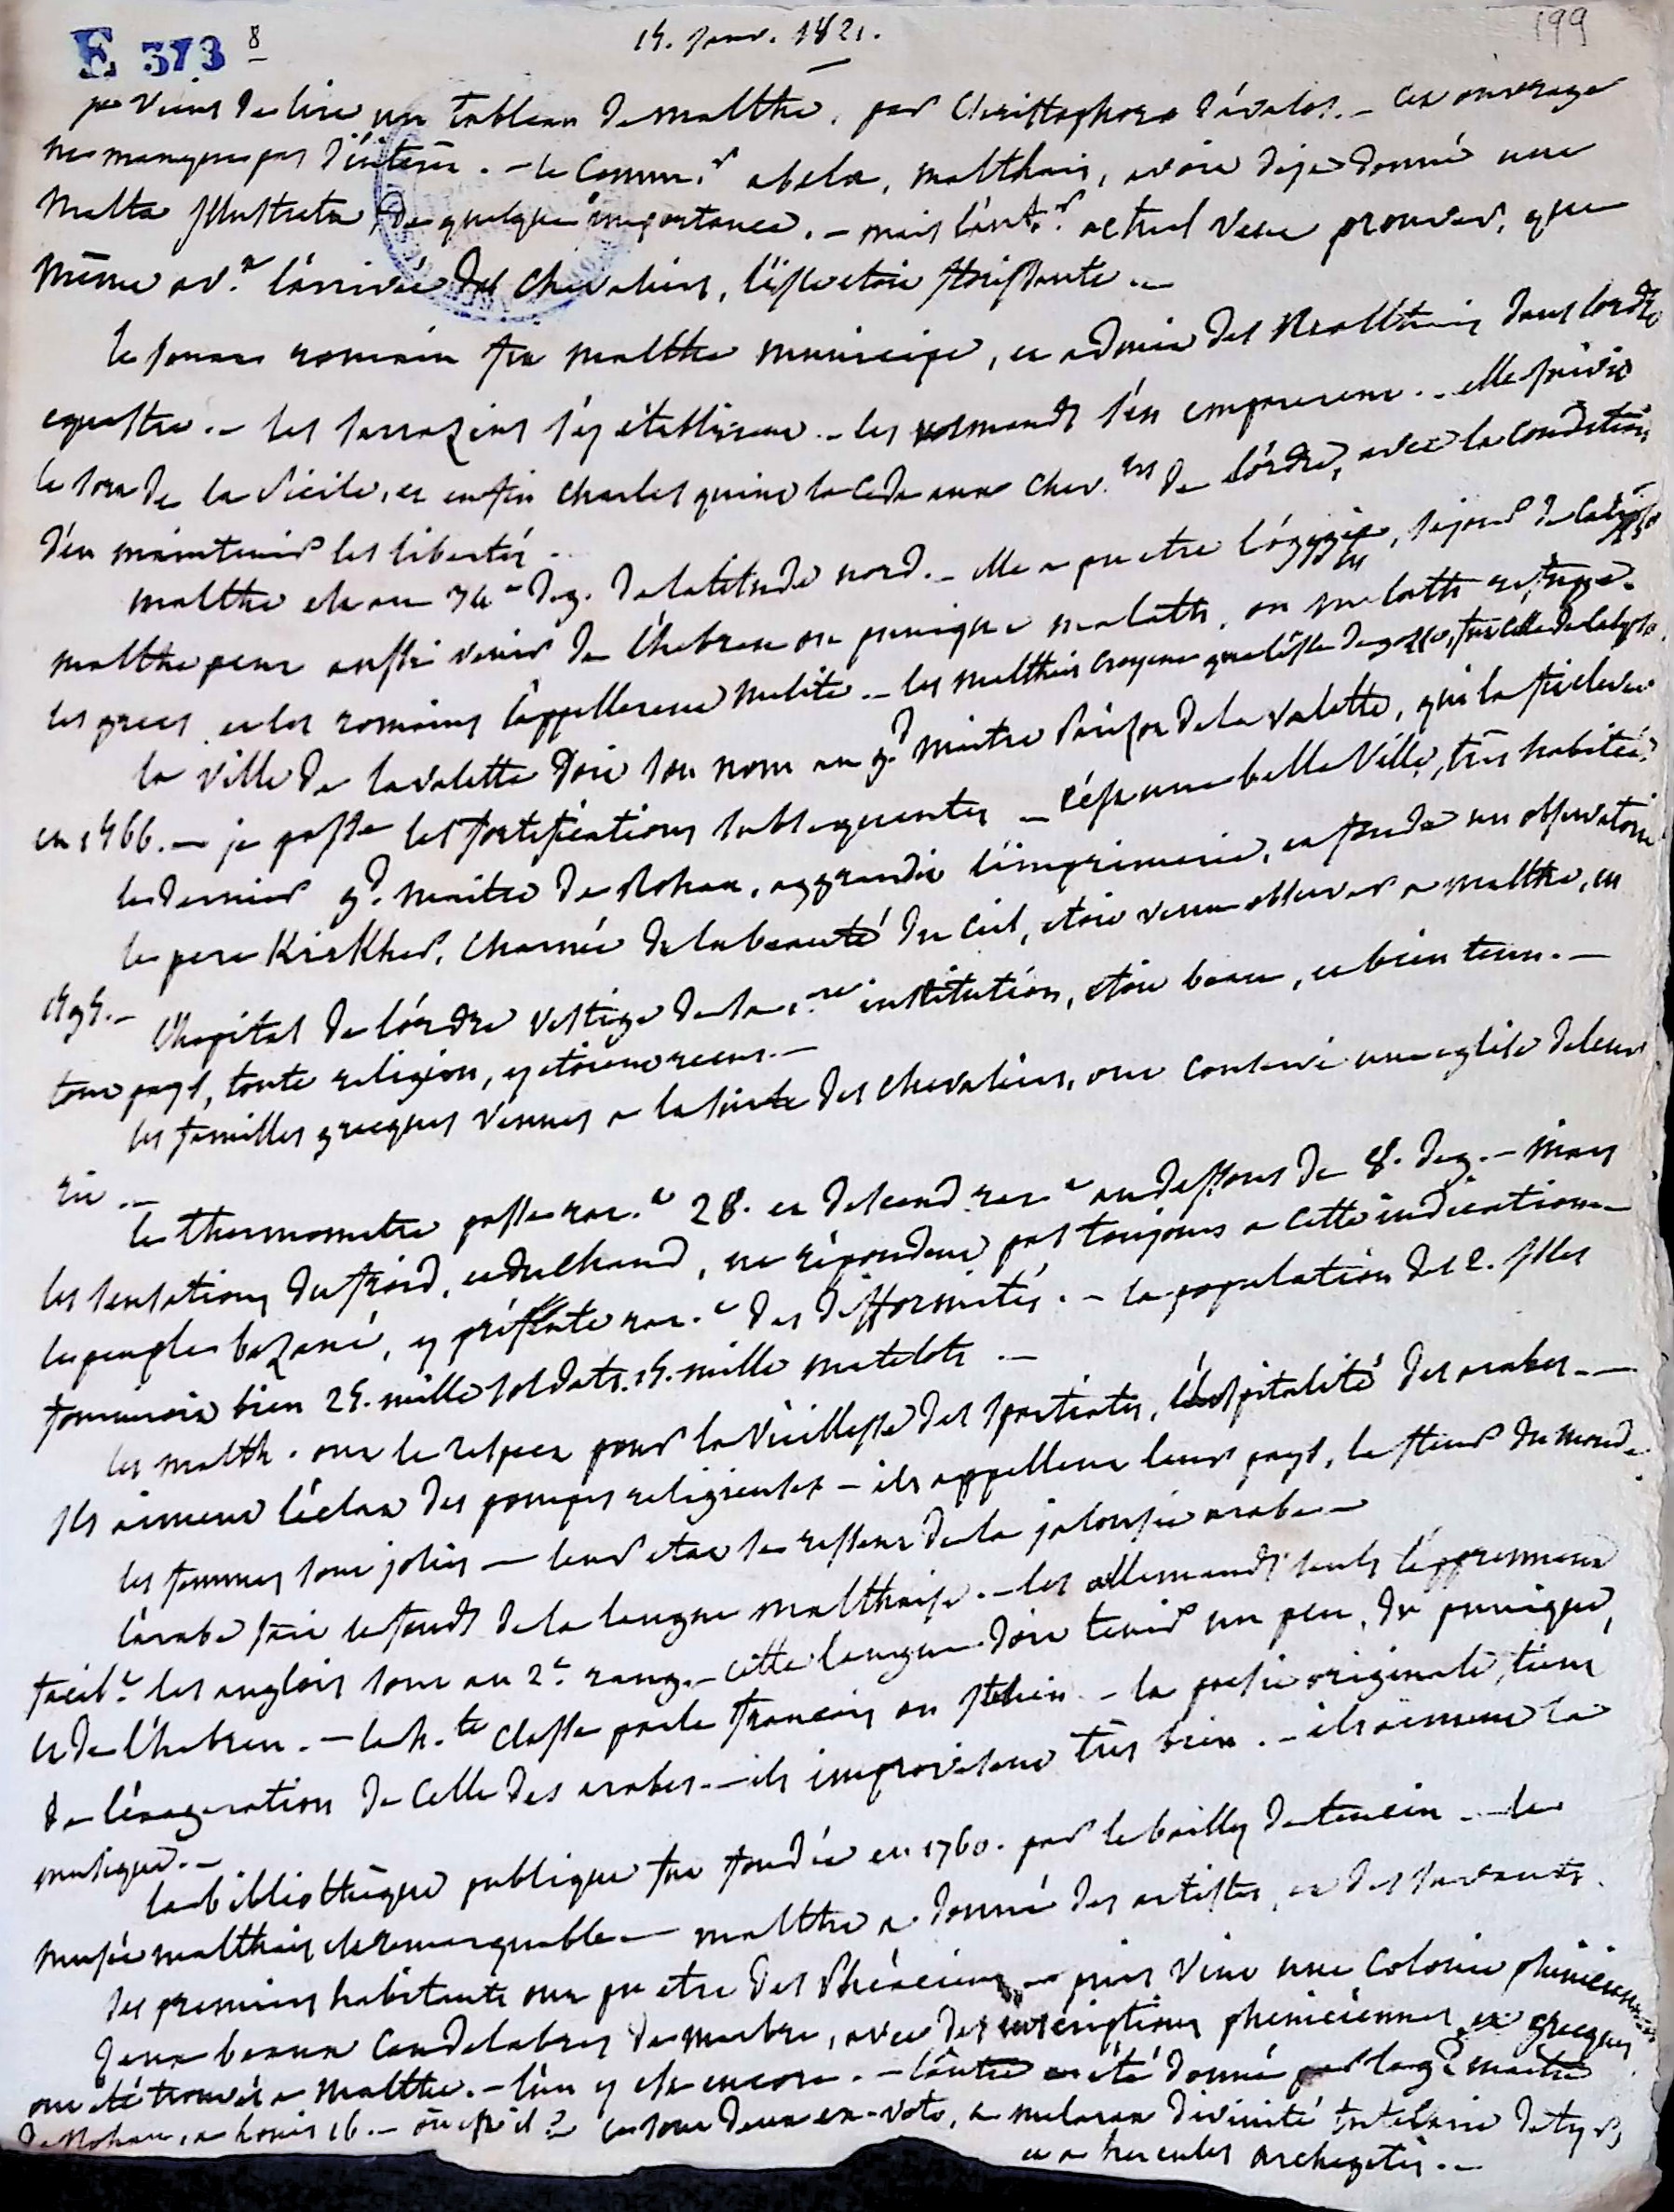 E 373 8
15. janv. 1821.
199
je viens de lire un tableau de malthe, par Christophoro d'ávalos. - cet ouvrage
ne manque pas d'intérêt. - le Comm.r abela, malthais, avoit deja donné une
Malta Illustrata de quelque importance. - mais l'aut.r actuel veut prouver, que
même av.t l'arrivée des chevaliers, l'isle etoit florissante. -
le senat romain fit malthe municipe, et admit des Malthais dans l'ordre
equestre. - les sarrazins s'y établirent. - les normands s'en emparerent. - elle suivit
le sort de la Sicile, et enfin charles quint la ceda aux chev.ers de l'ordre, avec la condition
d'en maintenir les libertés.
malthe est au 34e deg. de latitude nord. - elle a pu etre l'ogygie, sejour de Calypso
malthe peut aussi venir de l'hebreu ou punique malath, ou melath refuge.
les grecs et les romains l'appellerent melite. - les malthais croyent que l'isle de gozzo, fut celle de Calypso.
la ville de lavalette doit son nom au g.d maitre Parisot de la valette, qui la fit elever
en 1566. - je passe les fortifications subsequentes - c'est une belle ville, très habitée.
le dernier g.d maitre de Rohan, aggrandit l'imprimerie, et fonda un observatoire
le pere Kirkher, charmé de la beauté du ciel, etoit venu observer a malthe, en
L'hopital de l'ordre vestige de sa 1.re institution, etoit beau, et bien tenu. -
tout pays, toute religion, y etoient recus. -
les familles grecques venues a la suite des chevaliers, ont conservé une eglise de leur
rit. -
le thermometre passe rar.t 28. et descend rar.t au dessous de 8. deg. - mais
les sensations du froid, et du chaud, ne répondent pas toujours a cette indication -
le peuple bazané, y présente rar.t des difformités. - la population des 2. Isles
fourniroit bien 25. mille soldats. 15. mille matelots. -
les malth. ont le respect pour la vieillesse des spartiates, l'hospitalité des arabes. -
Ils aiment l'éclat des pompes religieuses - ils appellent leur pays, la fleur du monde.
les femmes sont jolies - leur etat se ressent de la jalousie arabe -
l'arabe fait le fonds de la langue malthaise. - les allemands seuls l'apprennent
facil.t les anglois sont au 2e rang. - cette langue doit tenir un peu, du punique,
et de l'hebreu. - la h.te classe parle francois ou italien. - la poesie originale, tient
de l'exageration de celle des arabes. - ils improvisent très bien. - ils aiment la
musique. -
la bibliothèque publique fut fondée en 1760. par le bailly de tencin. - le
musée malthais est remarquable - malthe a donné des artistes, et des savants.
les premiers habitants ont pu etre des Phéaciens - puis vint une Colonie phenicienne
deux beaux candelabres de marbre, avec des inscriptions pheniciennes et grecques
ont été trouvés a Malthe. - l'un y est encore. - l'autre a été donné par le g.d maitre
de Rohan, a Louis 16. - où est il? ce sont deux ex-voto, a melcarax divinité tutelaire de tyr,
et a hercules archegetis. -